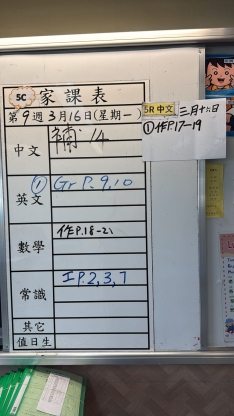 5C 家課表
第9週3月16日(星期一)
中文 補14
英文 ① Gr P.9,10
數學 作P.18-21
常識 工P.2,3,7
其它
值日生
5R 中文 三月十六日
①作P.17-19